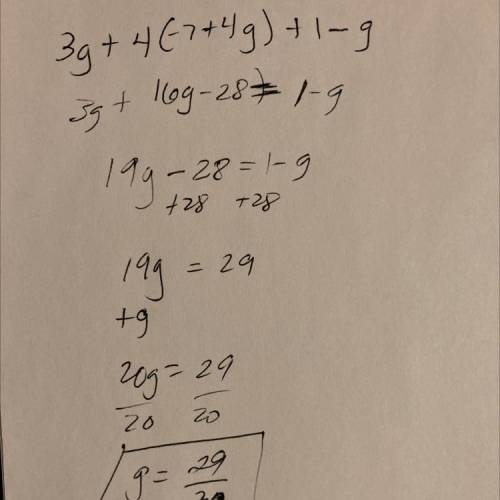 3g + 4(-7+4g) + 1 - g
3g + 16g - 28 = 1 - g
19g - 28 = 1 - g
+28 +28
19g = 29
+g
20g = 29
20 20
g = 29